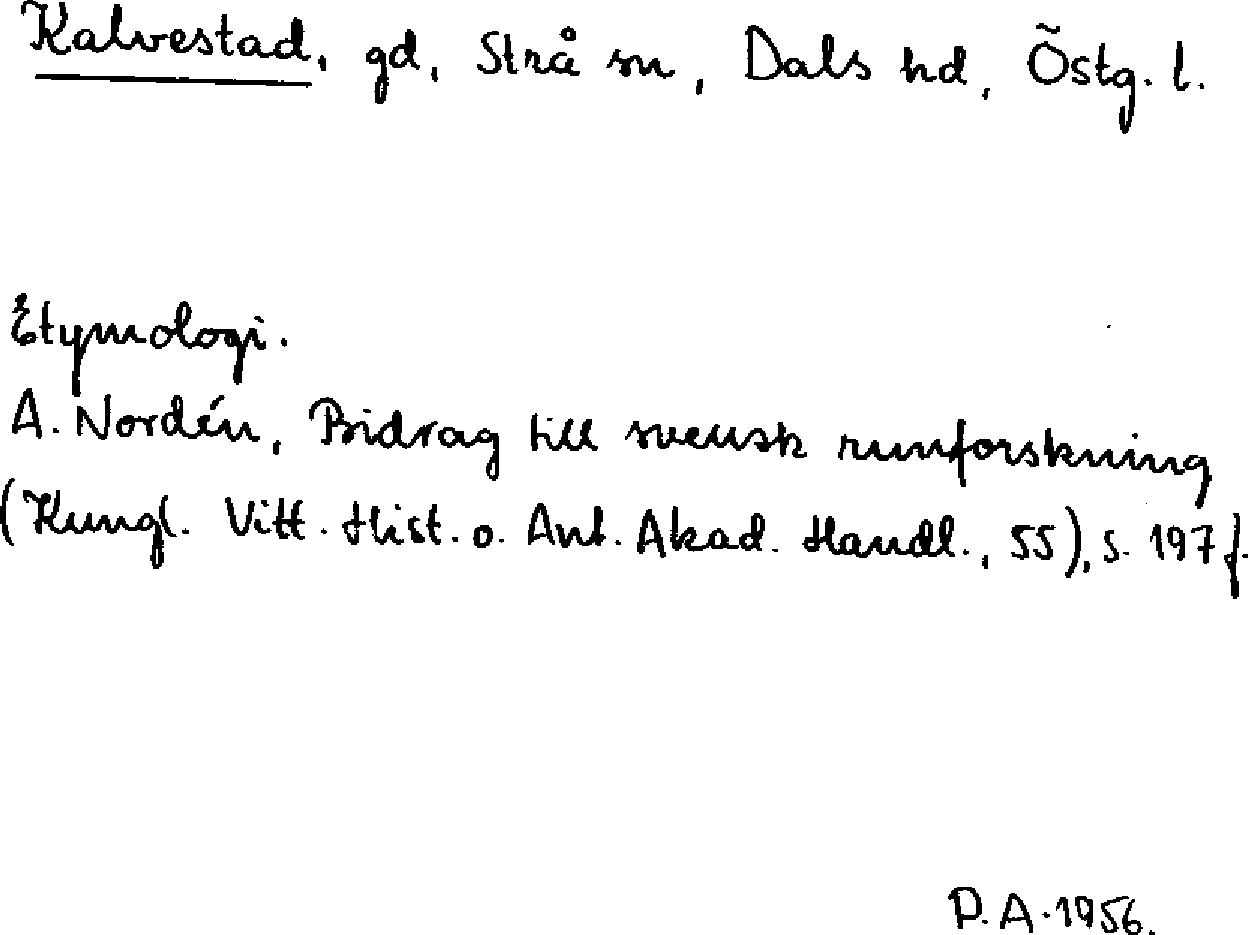 Kalvestad, gd, Strå sn, Dals hd, Östg. l.
Etymologi.
A. Nordén, Bidrag till svensk runforskning
(Kungl. Vitt. Hist. o. Ant. Akad. Handl., 55), s. 197 f.
P. A. 1956.